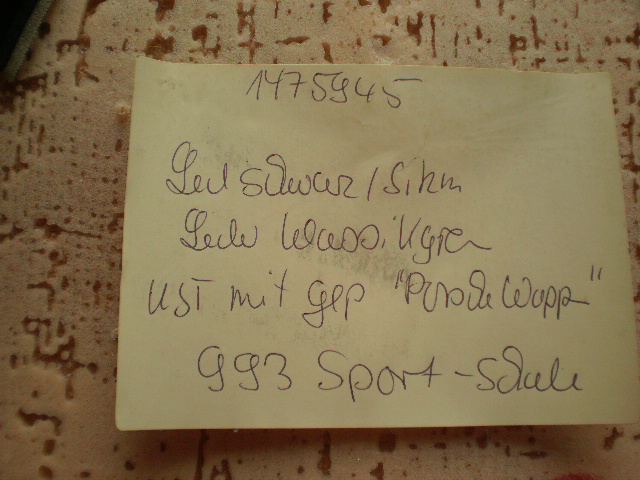 1475945
Led schwarz / Sitzm
Leder klassikgrau
KST mit gep "Porsche Wapp"
993 Sport-Schale